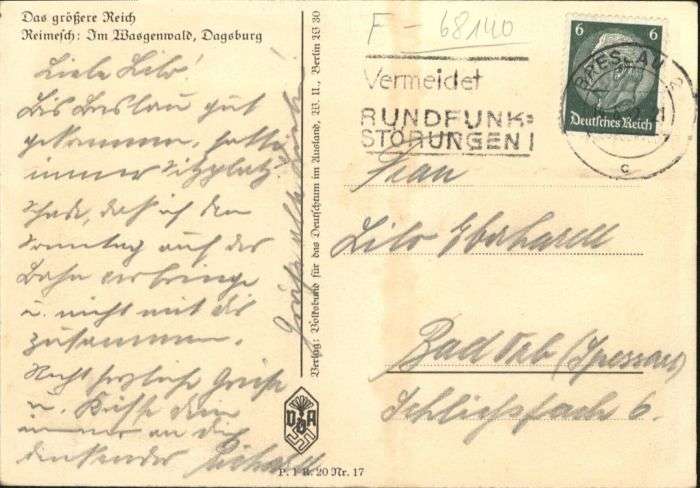 Das größere Reich
Reimesch: Im Wasgenwald, Dagsburg
Liebe Lilo!
Bis Breslau gut
gekommen, hatte
immer Sitzplatz.
Schade, daß ich den
Sonntag auf der
Bahn verbringe
u. nicht mit dir
zusammen.
Recht herzliche Grüße
u. Küsse dein
immer an dich
denkender Richard
Grüße alle
Verlag: Volksbund für das Deutschtum im Ausland, W. U., Berlin W 30
VDA
P. 1 R. 20 Nr. 17
F - 68140
Vermeidet
RUNDFUNK=
STÖRUNGEN!
6 6
Deutsches Reich
BRESLAU 2
c
Frau
Lilo Eberhardt
Bad Orb (Spessart)
Schließfach 6.